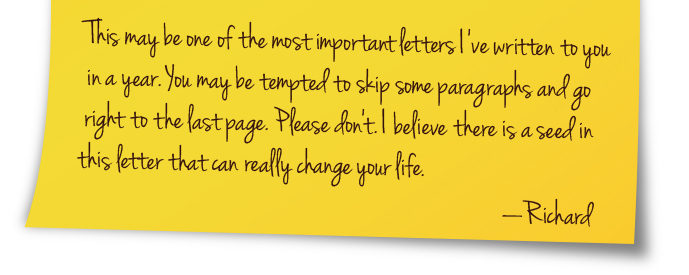 This may be one of the most important letters I've written to you
in a year. You may be tempted to skip some paragraphs and go
right to the last page. Please don't. I believe there is a seed in
this letter that can really change your life.
—Richard